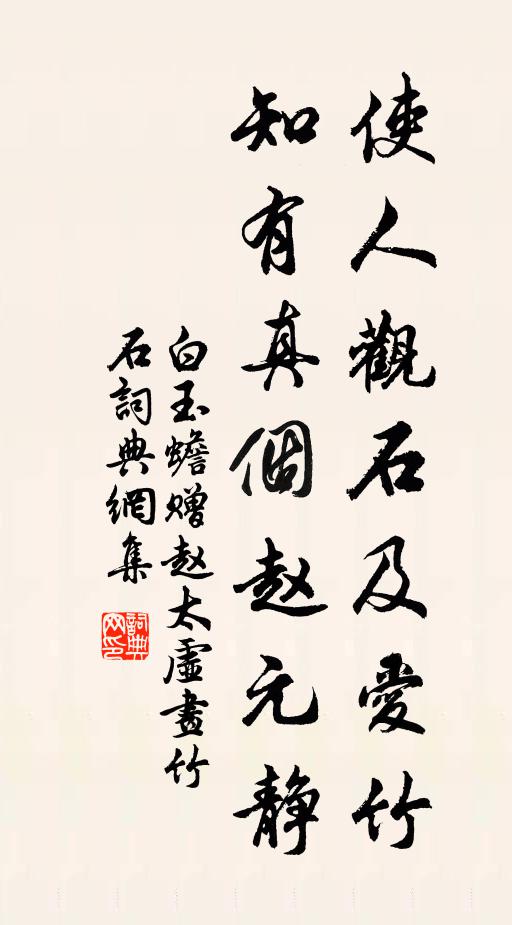 使人觀石及愛竹
知有真個赵元静
白玉蟾赠赵太虛畫竹
石詞典網集
詞典网印